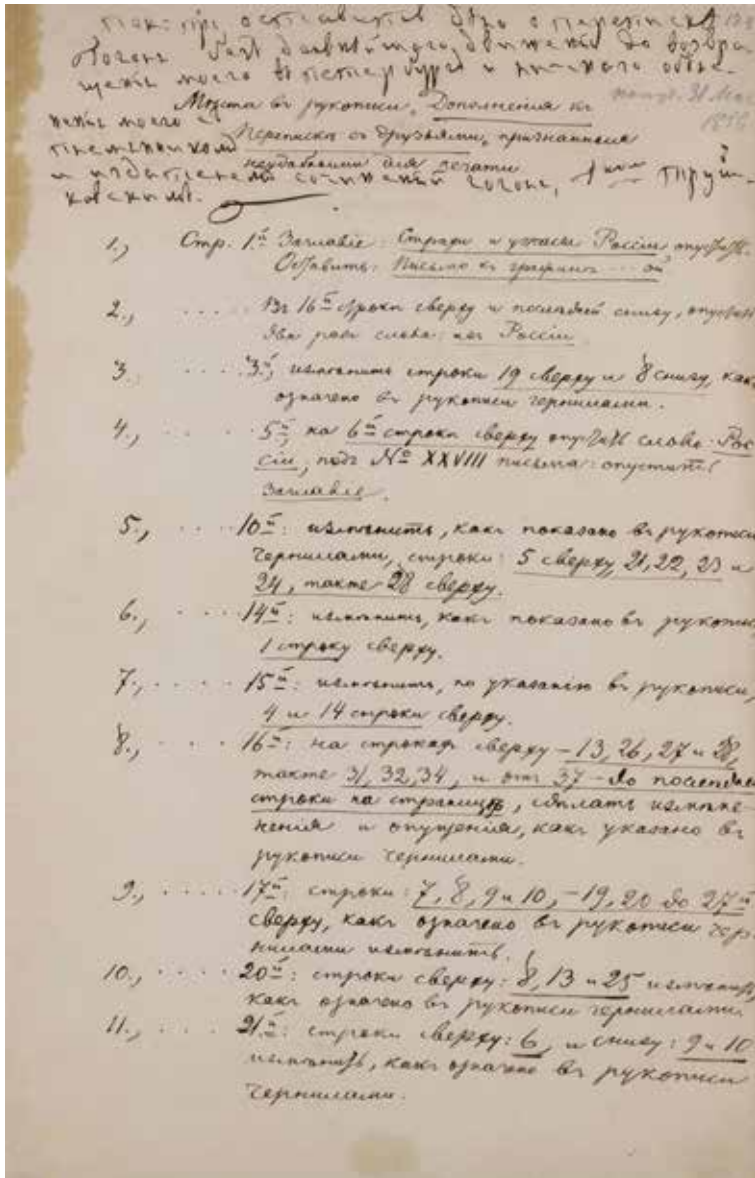 покорнѣйше оставить дѣло о перепискѣ
Гоголя безъ дальнѣйшаго движенія до возвра-
щенія моего въ Петербургъ и личнаго объяс-
Мѣста въ рукописи, Дополненія къ
31 Мая
ненія моего съ
Перепискѣ съ друзьями, признанныя
племянникомъ
неудобными для печати
и издателемъ сочиненій Гоголя, Труш-
ковскимъ.
1., Стр. 1й Заглавіе: Страхи и ужасы Россіи опустить.
Оставить: Письмо къ графинѣ ... ой
2., . . . . Въ 16й строкѣ сверху и послѣдней снизу, опустить
два раза слова: изъ Россіи
3. . . . . 3й, измѣнить строки 19 сверху и 8 снизу, какъ
означено въ рукописи чернилами.
4., . . . . 5й, на 6й строкѣ сверху опустить слово: Рос-
сіи, подъ № XXVIII письма: опустить
Заглавіе.
5., . . . . 10й: измѣнить, какъ показано въ рукописи
чернилами, строки: 5 сверху, 21, 22, 23 и
24, также 28 сверху.
6., . . . . 14й: измѣнить, какъ показано въ рукописи,
1 строку сверху.
7., . . . . 15й: измѣнить, по указанію въ рукописи,
4 и 14 строки сверху.
8., . . . . 16й: на строкахъ сверху – 13, 26, 27 и 28,
также 31, 32, 34, и отъ 37 – до послѣдней
строки на страницѣ, сдѣлать измѣне-
ненія и опущенія, какъ указано въ
рукописи чернилами.
9., . . . . 17й: строки: 7, 8, 9 и 10, – 19, 20 до 27й
сверху, какъ означено въ рукописи чер-
нилами измѣнить.
10., . . . . 20й: строки сверху: 8, 13 и 25 измѣнить,
какъ означено въ рукописи чернилами.
11., . . . . 21й: строки сверху: 6, и снизу: 9 и 10
измѣнить, какъ означено въ рукописи
чернилами.